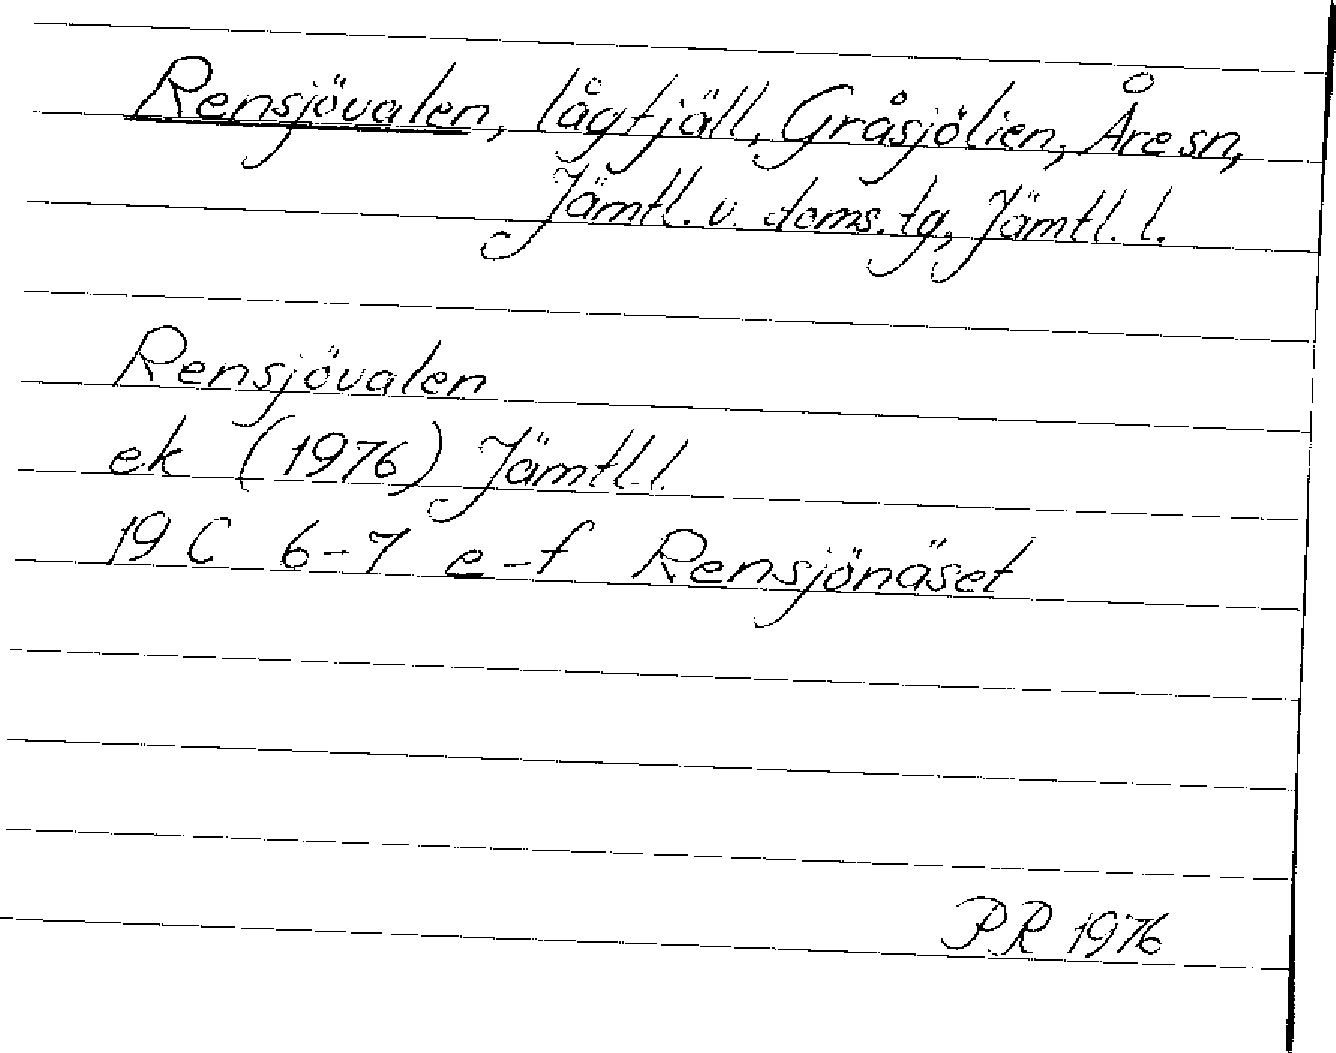 Rensjövalen, lågfjäll, Gråsjölien, Åre sn,
Jämtl. v. doms. tg, Jämtl. l.
Rensjövalen
ek (1976) Jämtl. l.
19 C 6-7 e-f Rensjönäset
P.R 1976